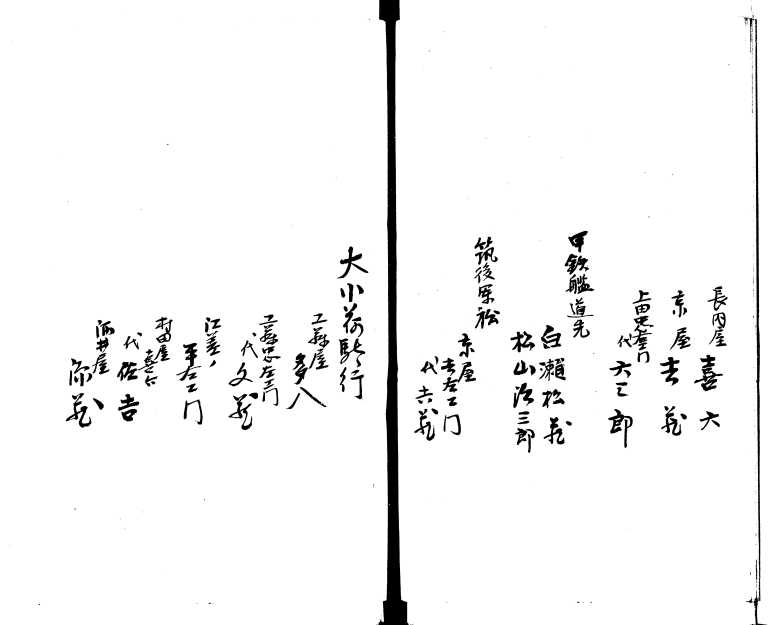 長内屋
喜六
京屋
吉蔵
上田忠左衛門
代
六三郎
甲鉄艦道先
白瀬松蔵
松山治三郎
筑後屋
京屋
吉左エ門
代吉蔵
大小荷駄行
工藤屋
多八
工藤忠左エ門
代
文蔵
平左エ門
村田屋
代
佐吉
酒井屋